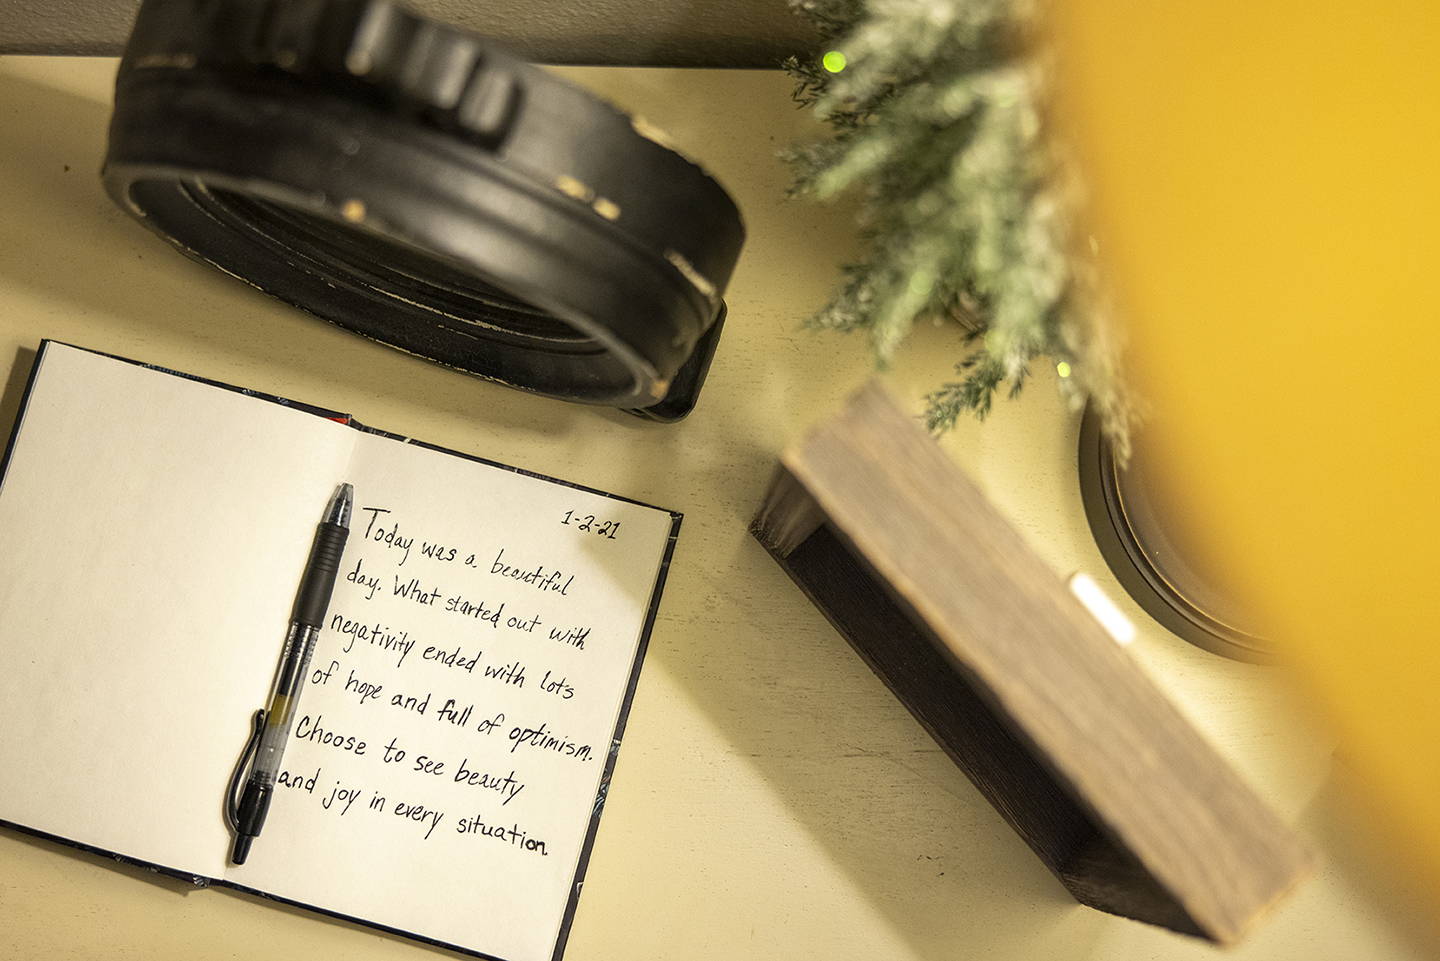 1-2-21
Today was a beautiful
day. What started out with
negativity ended with lots
of hope and full of optimism.
Choose to see beauty
and joy in every situation.